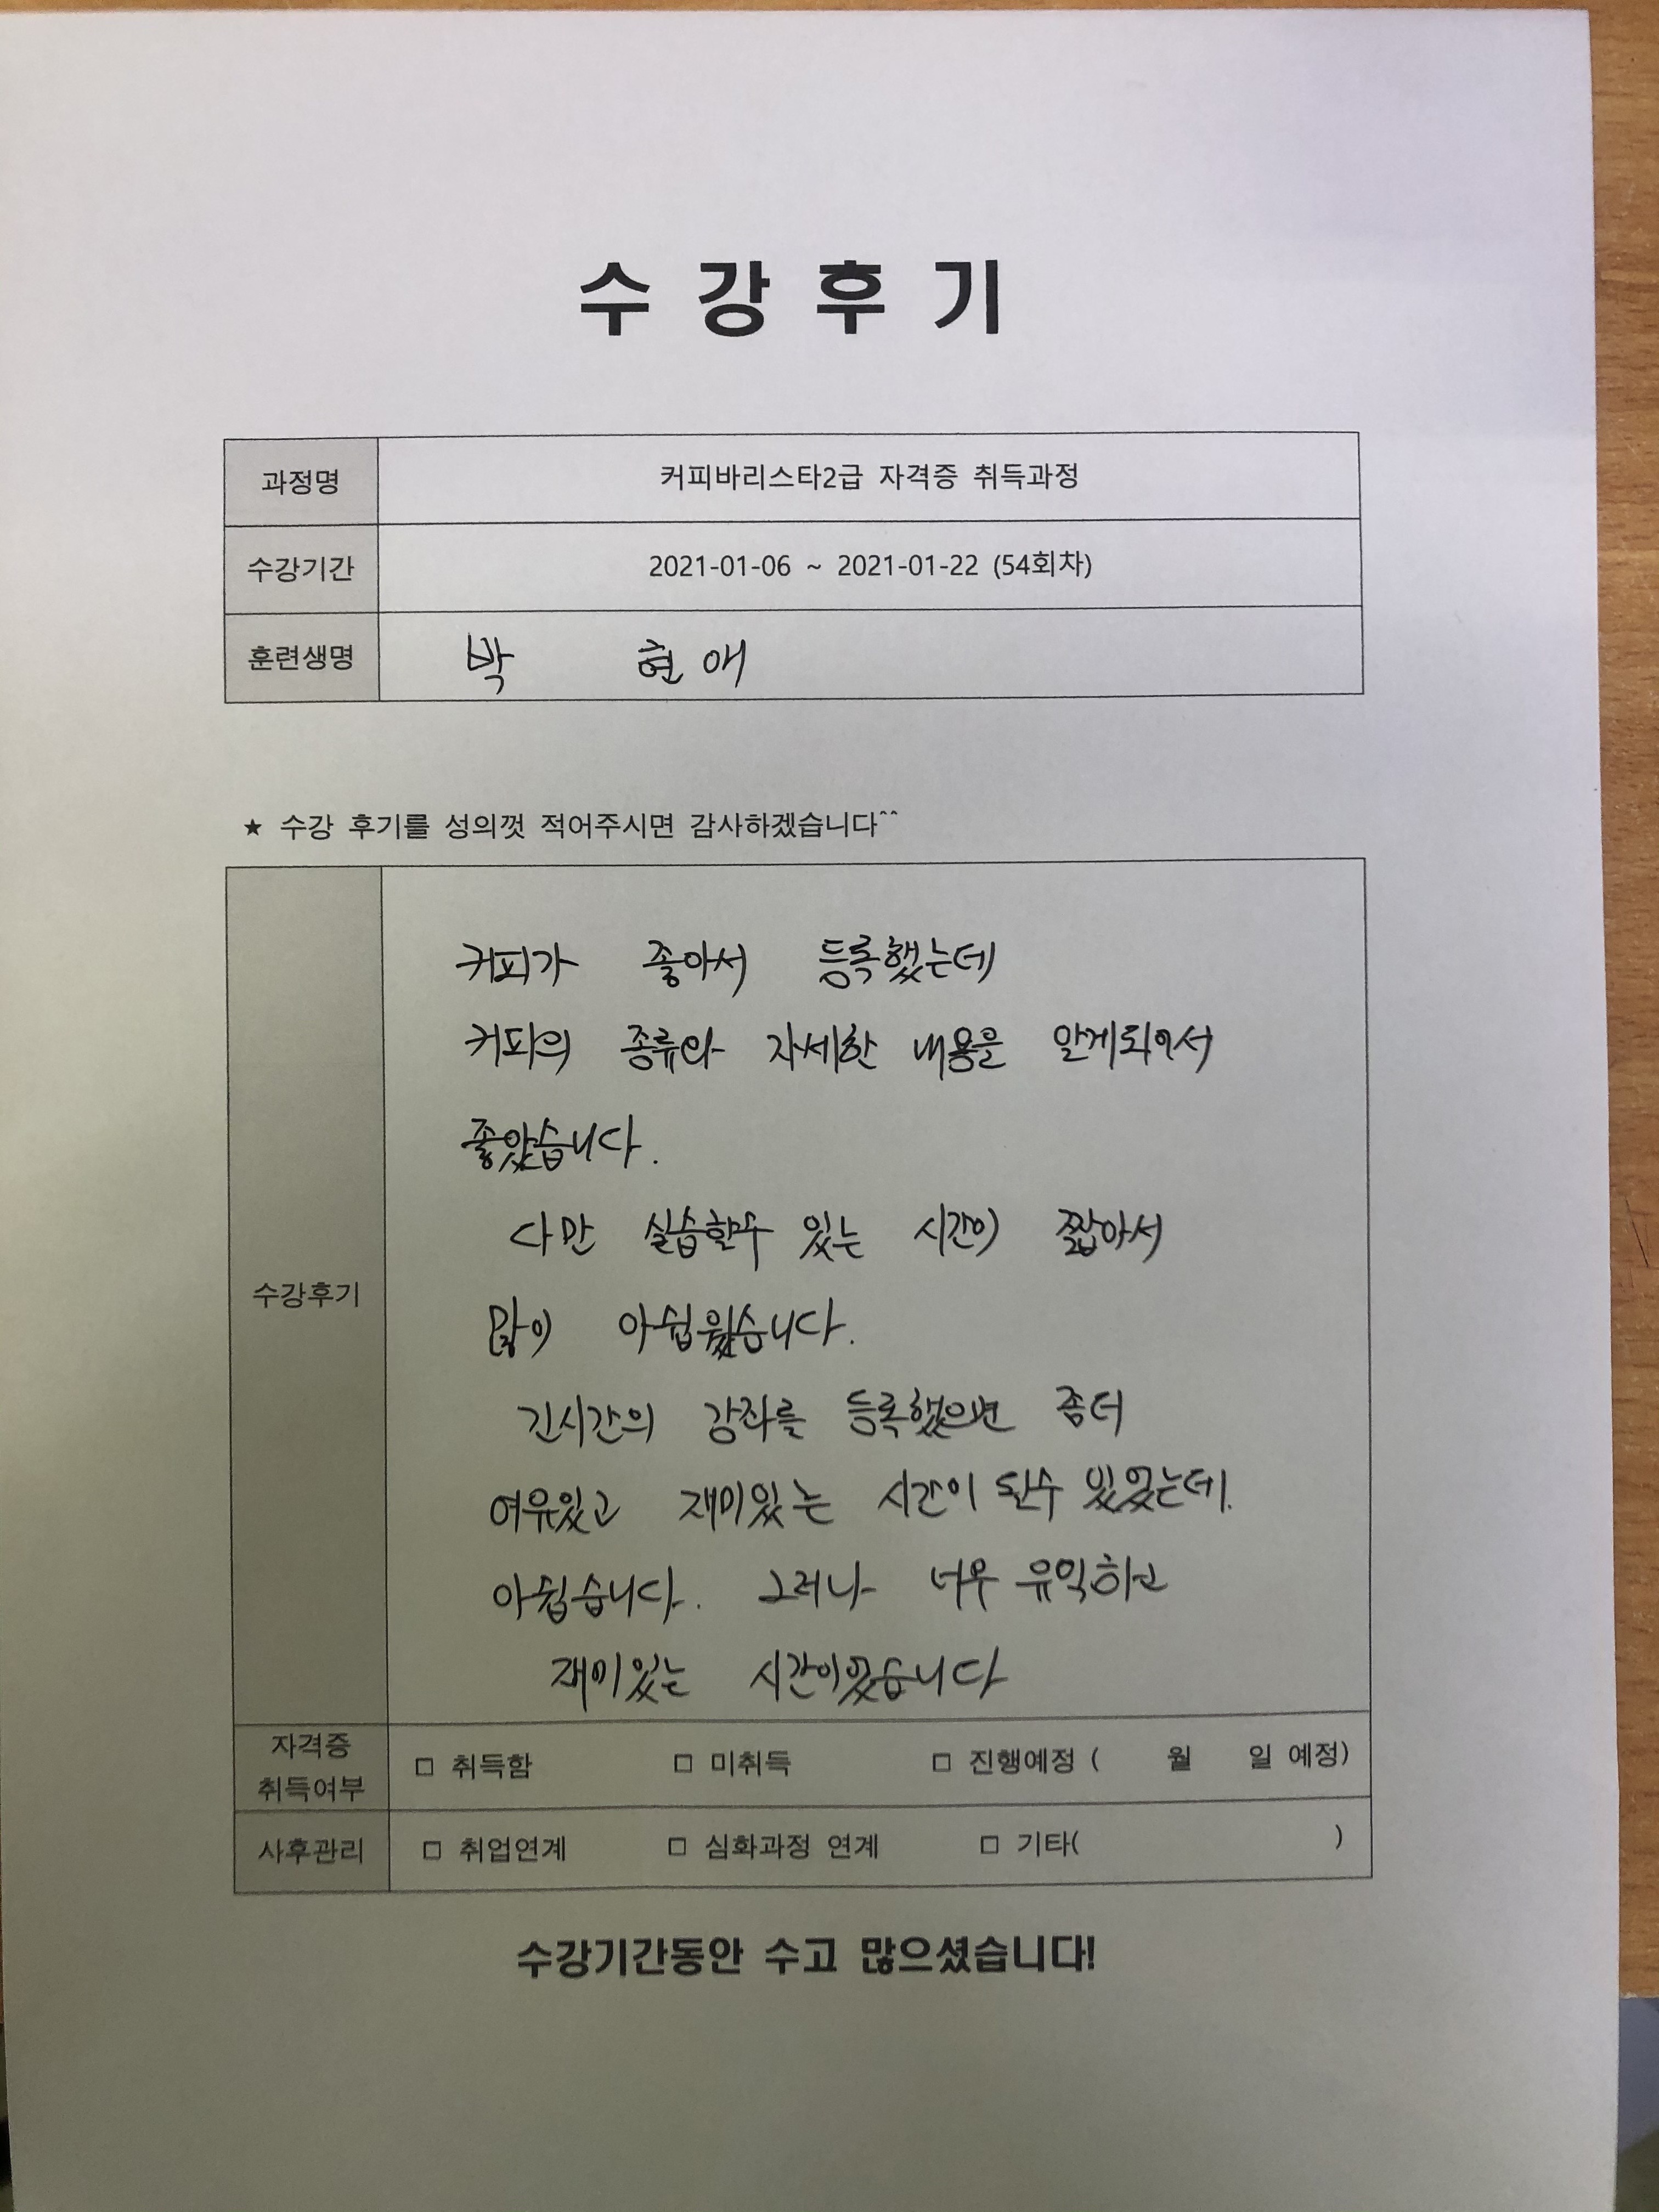 수강후기
과정명 커피바리스타2급 자격증 취득과정
수강기간 2021-01-06 ~ 2021-01-22 (54회차)
훈련생명 박 현애
★ 수강 후기를 성의껏 적어주시면 감사하겠습니다^^
수강후기
커피가 좋아서 등록했는데
커피의 종류와 자세한 내용을 알게되어서
좋았습니다.
다만 실습할수 있는 시간이 짧아서
많이 아쉽웠습니다.
긴시간의 강좌를 등록했으면 좀더
여유있고 재미있는 시간이 된수 있었는데.
아쉽습니다. 그러나 너무 유익하고
재미있는 시간이었습니다
자격증 취득여부 □ 취득함 □ 미취득 □ 진행예정 ( 월 일 예정)
사후관리 □ 취업연계 □ 심화과정 연계 □ 기타( )
수강기간동안 수고 많으셨습니다!